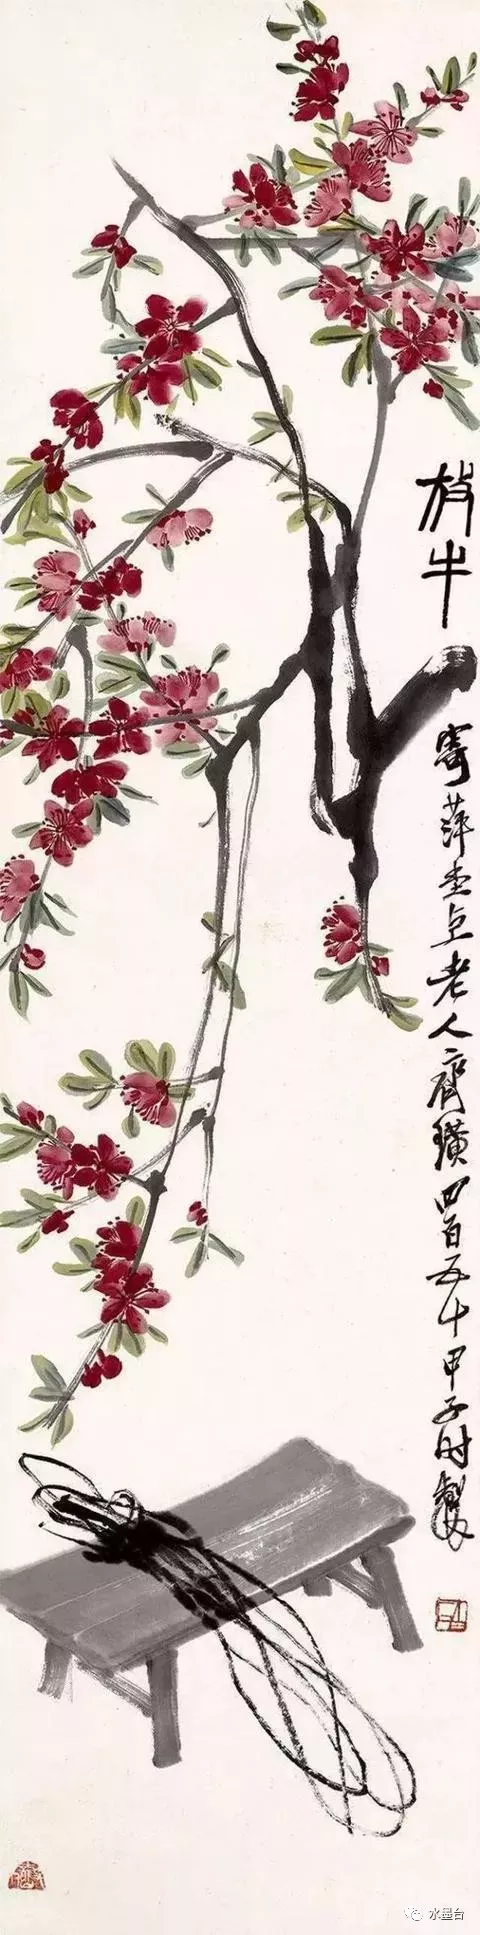 放牛
寄萍堂上老人齊璜四百五十甲子时製
水墨台